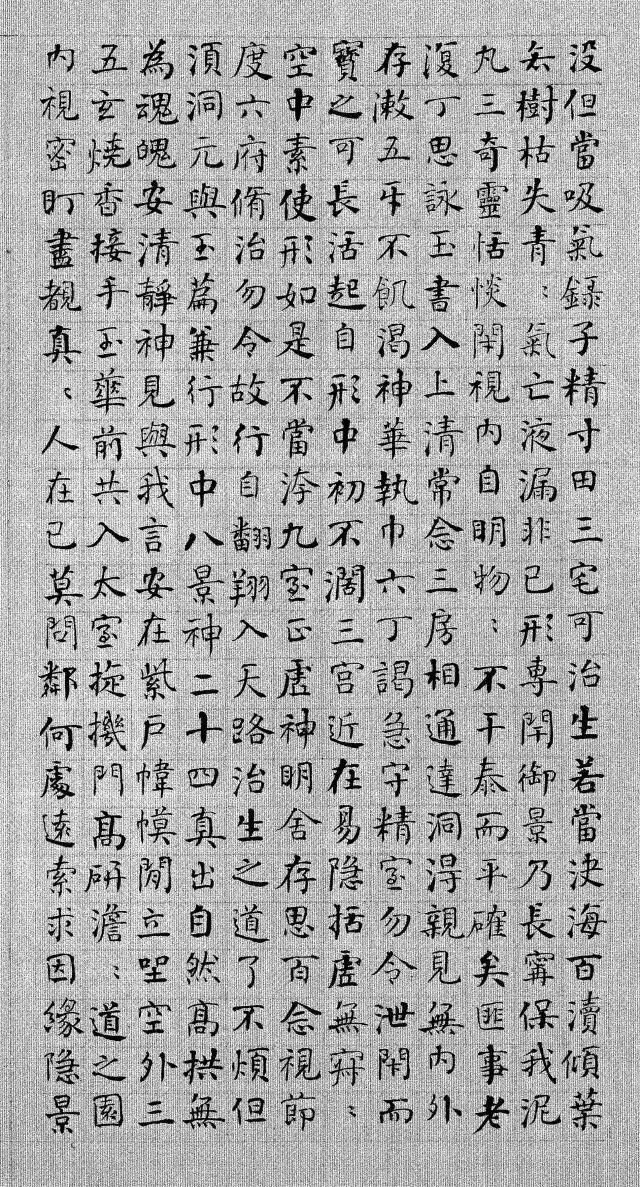 没但當吸氣錄子精寸田三宅可治生若當決海百瀆傾葉
去樹枯失青〻氣亡液漏非已形專閉御景乃長寧保我泥
丸三奇靈恬惔閉視內自明物〻不干泰而平確矣匪事老
復丁思詠玉書入上清常念三房相通達洞得親見無內外
存漱五牙不飢渴神華執巾六丁謁急守精室勿令泄閉而
寶之可長活起自形中初不闊三宮近在易隱括虛無寂〻
空中素使形如是不當汚九室正虛神明舍存思百念視節
度六府脩治勿令故行自翻翔入天路治生之道了不煩但
湏洞元與玉篇兼行形中八景神二十四真出自然高拱無
為魂魄安清靜神見與我言安在紫戶幃幙間立坐空外三
五玄燒香接手玉華前共入太室璇機門高研澹〻道之園
內視密盼盡覩真〻人在已莫問鄰何處遠索求因緣隱景